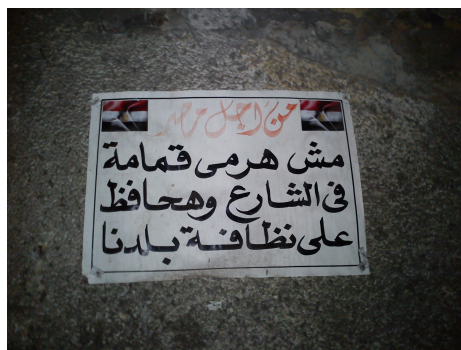 من اجل مصر
مش هرمى قمامة
فى الشارع وهحافظ
على نظافة بلدنا